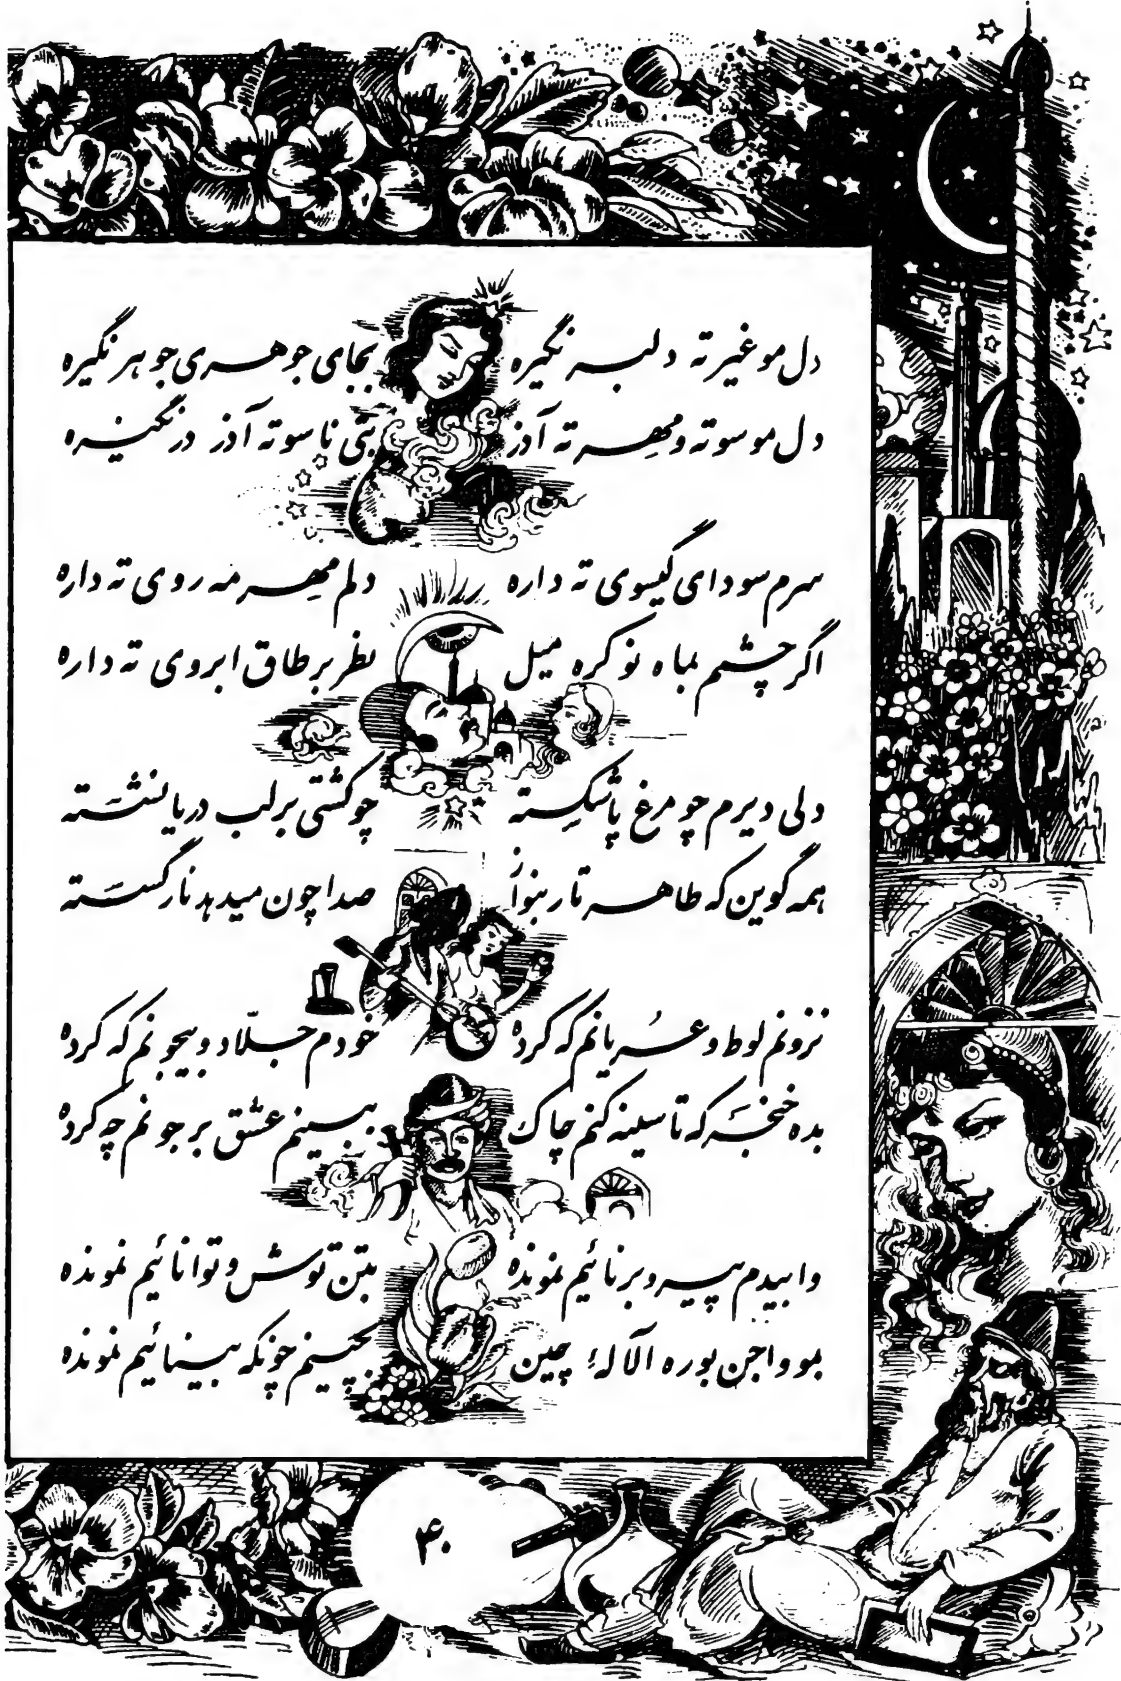 دل مو غیر ته دلبر نگیره بجای جوهری جوهر نگیره
دل مو سوته و مهر ته آذر بتی ناسوته آذر در نگیره
سرم سودای گیسوی ته داره دلم مهر مه روی ته داره
اگر چشمم بماه نو کره میل نظر بر طاق ابروی ته داره
دلی دیرم چو مرغ پا شکسته چو کشتی بر لب دریا نشسته
همه گوین که طاهر تار بنواز صدا چون میدهد تار گسسته
نزونم لوط و عریانم که کرده خودم جلّاد و بیجونم که کرده
بده خنجر که تا سینه کنم چاک ببینم عشق بر جونم چه کرده
وابیدم پیر و برنائیم نمونده بتن توش و توانائیم نمونده
بمو واجن بوره آلالهٔ چین بچینم چونکه بینائیم نمونده
۴۰